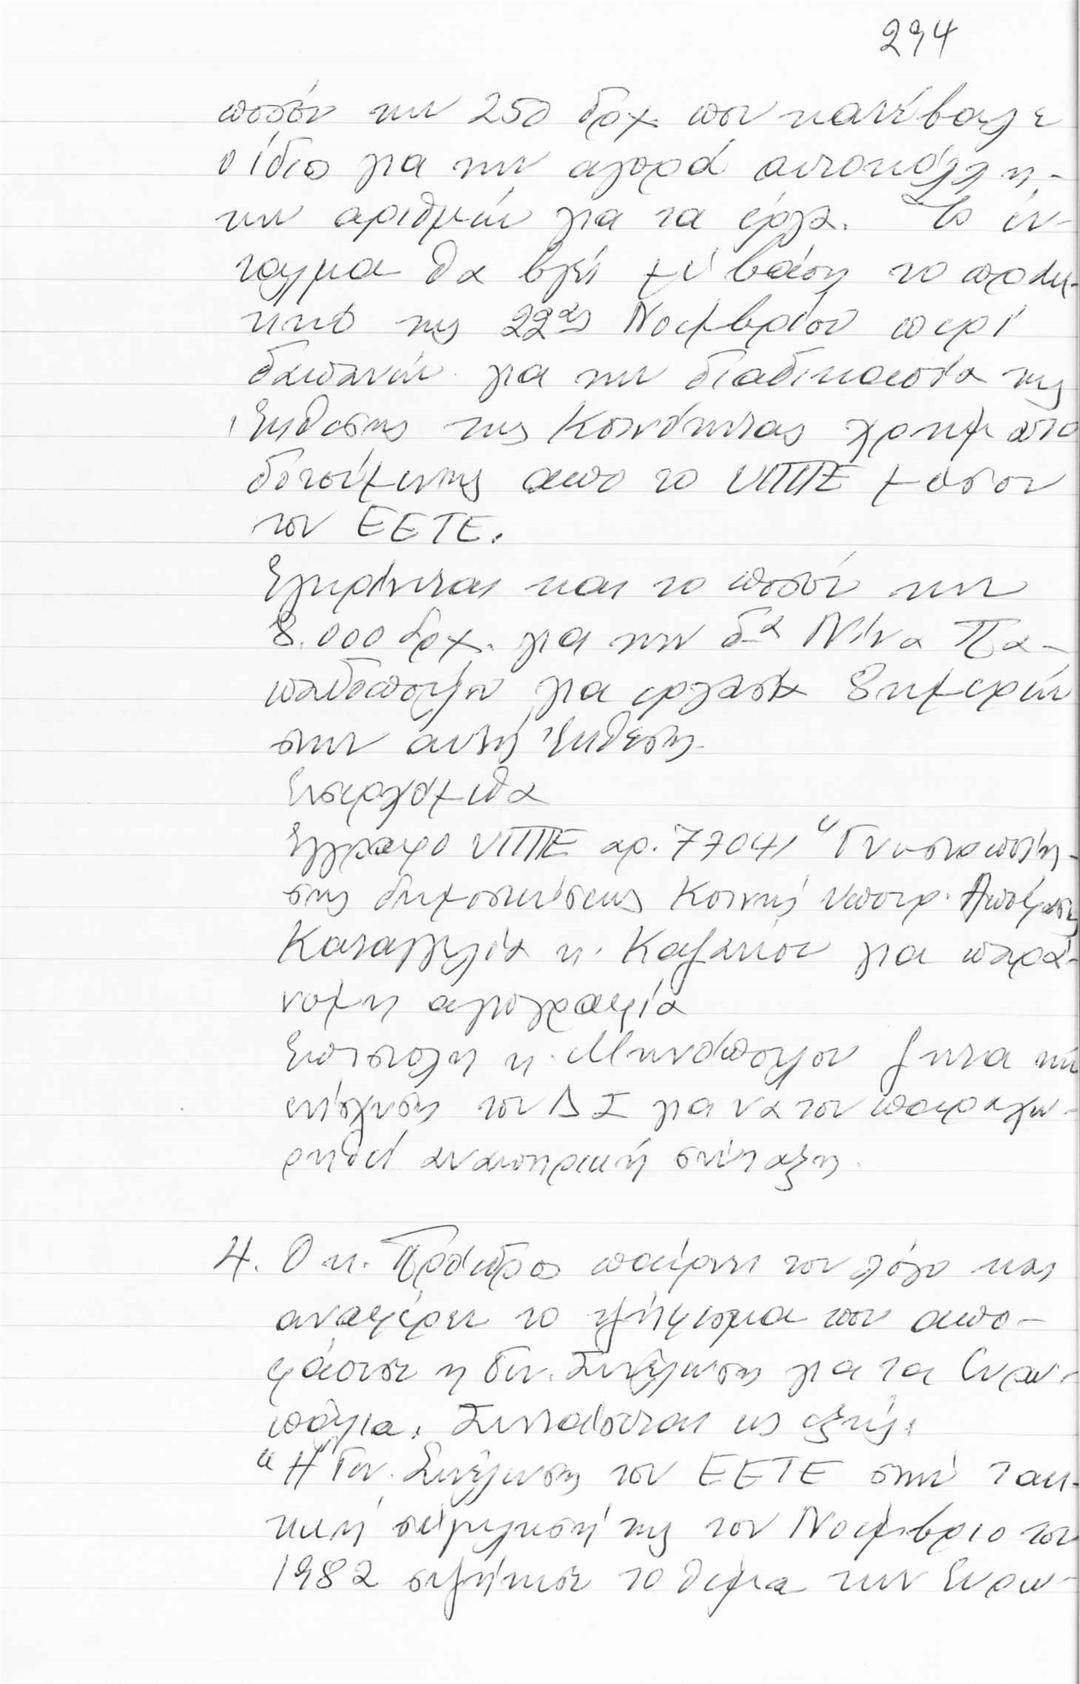 294
ποσόν των 250 δρχ που κατέβαλε
ο ίδιος για την αγορά αυτοκόλλη-
των αριθμών για τα έργα. Το έν-
ταλμα θα βγεί με βάση το πρακ-
τικό της 22ας Νοεμβρίου περί
δαπανών για την διαδικασία της
Έκθεσης της Κοινότητας χρηματο
δοτούμενης απο το ΥΠΠΕ μέσον
του ΕΕΤΕ.
Εγκρίνεται και το ποσόν των
8.000 δρχ. για την δα Νίνα Πα-
παδοπούλου για εργασία 8 ημερών
στην αυτή Έκθεση.
Εισερχόμεθα
Έγγραφο ΥΠΠΕ αρ. 77041 "Γνωστοποίη-
σης δημοσιεύσεως Κοινής Υπουρ. Απόφασης
Καταγγελία κ. Καζακου για παρά-
νομη αγιογραφία
Επιστολή κ. Μηνόπουλου ζητα την
ενίσχυση του Δ Σ για να του παραχω-
ρηθεί αναπηρική σύνταξη.
4. Ο κ. Πρόεδρος παίρνει τον λόγο και
αναφέρει το ψήφισμα που απο-
φάσισε η Γεν. Συνέλευση για τα Ευρω-
πάλια. Συντάσσεται ως εξής.
"Η Γεν. Συνέλευση του ΕΕΤΕ στην τακ-
τική συγκέντρωσή της τον Νοέμβριο του
1982 συζήτησε το θέμα των Ευρω-